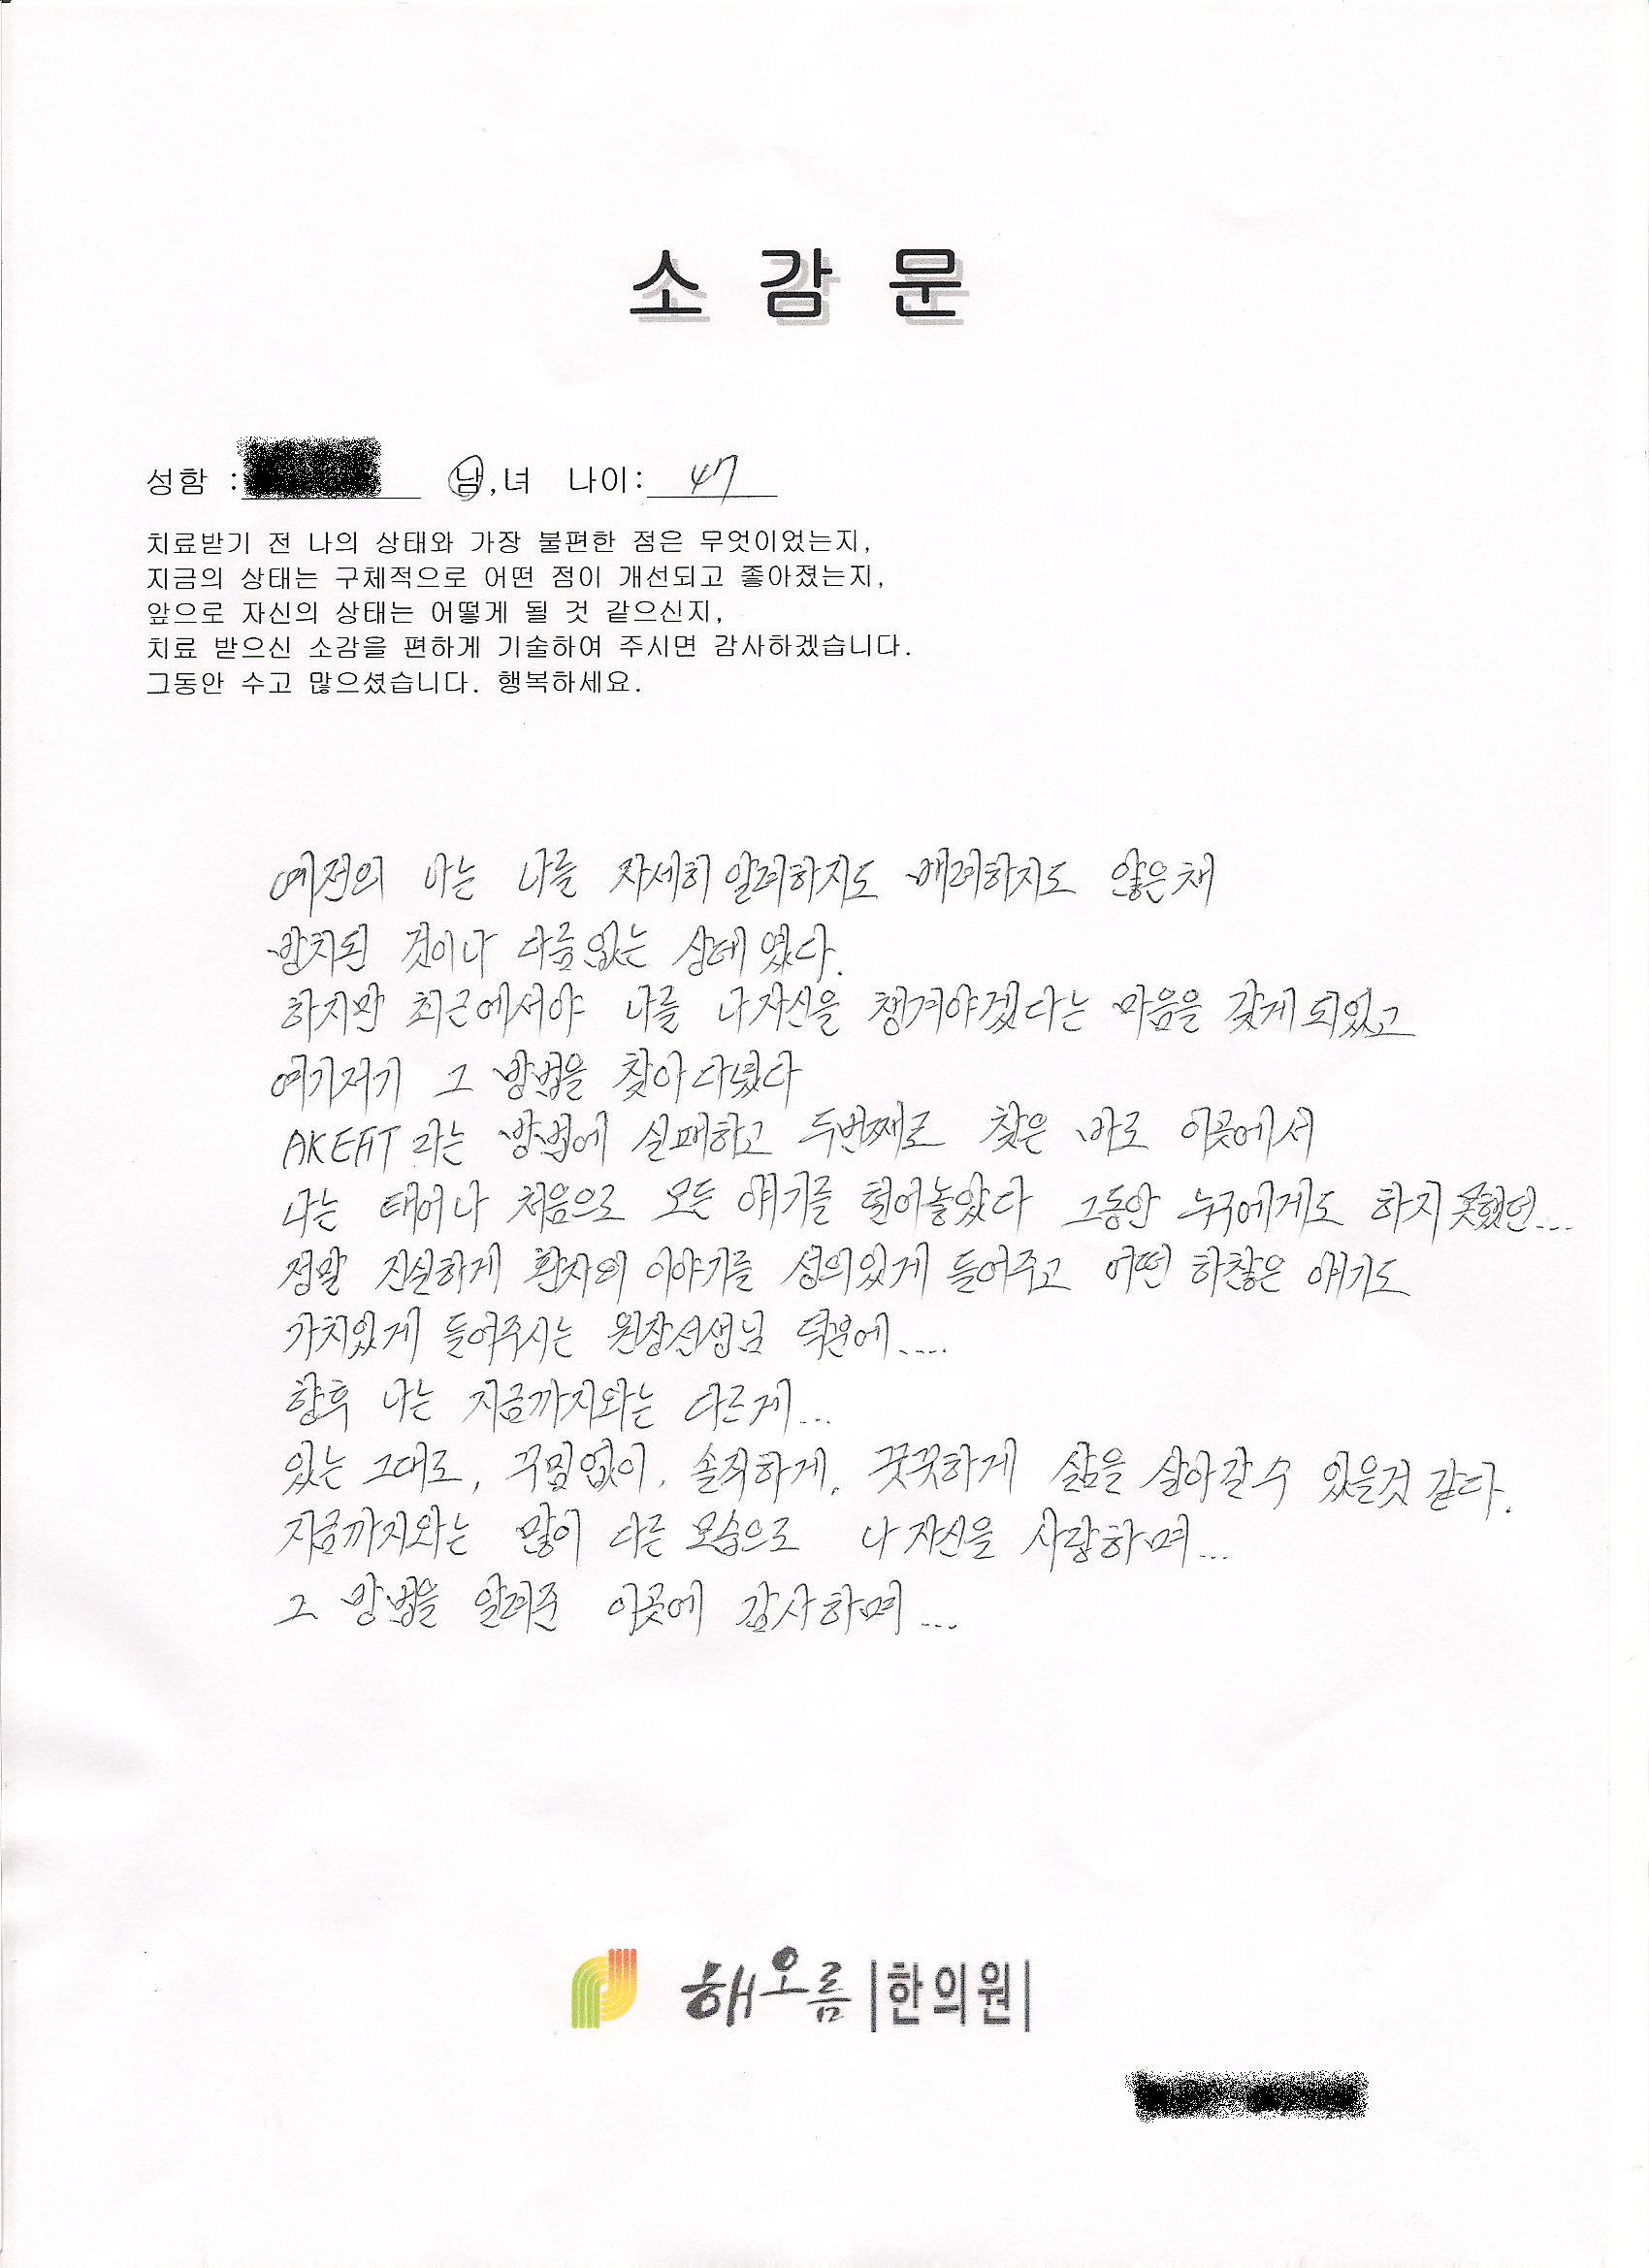 소 감 문
성함 : 남,녀 나이: 47
치료받기 전 나의 상태와 가장 불편한 점은 무엇이었는지,
지금의 상태는 구체적으로 어떤 점이 개선되고 좋아졌는지,
앞으로 자신의 상태는 어떻게 될 것 같으신지,
치료 받으신 소감을 편하게 기술하여 주시면 감사하겠습니다.
그동안 수고 많으셨습니다. 행복하세요.
예전의 나는 나를 자세히 알려하지도 배려하지도 않은채
방치된 것이나 다름없는 상태였다.
하지만 최근에서야 나를 나자신을 챙겨야겠다는 마음을 갖게되었고
여기저기 그 방법을 찾아다녔다
라는 방법에 실패하고 두번째로 찾은 바로 이곳에서
나는 태어나 처음으로 모든 얘기를 털어놓았다 그동안 누구에게도 하지못했던...
정말 진실하게 환자의 이야기를 성의있게 들어주고 어떤 하찮은 얘기도
가치있게 들어주시는 원장선생님 덕분에....
향후 나는 지금까지와는 다르게...
있는 그대로, 꾸밈없이, 솔직하게, 꿋꿋하게 삶을 살아갈수 있을것 같다.
지금까지와는 많이 다른 모습으로 나 자신을 사랑하며...
그 방법을 알려준 이곳에 감사하며...
해오름 |한의원|